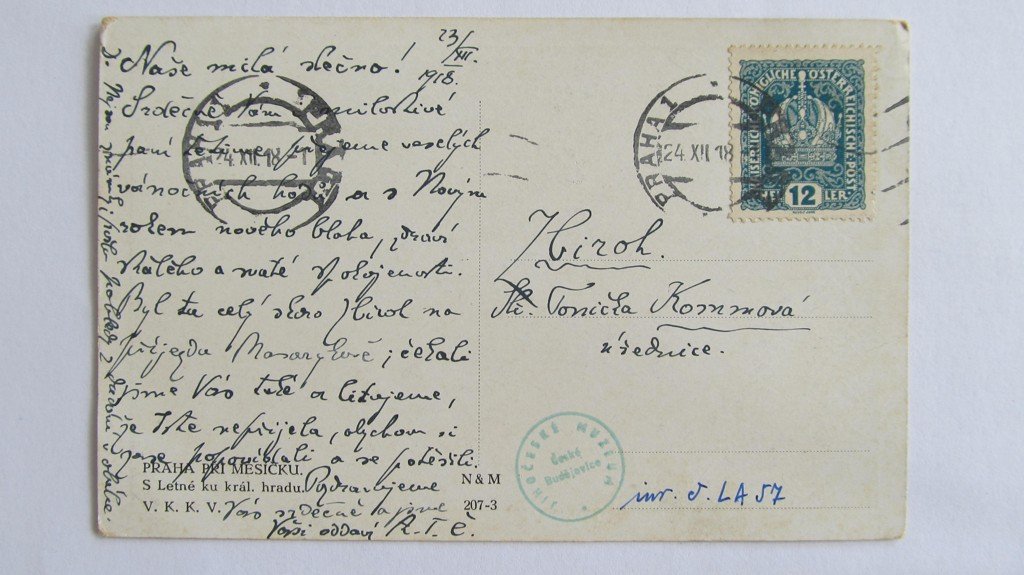 23/XII.
1918.
Naše milá slečno!
Srdečně Vám milostivé
paní přejeme veselých
vánočních hodů a s Novým
rokem nového blaha, zdraví
stálého a svaté spokojenosti.
Byl tu celý skoro Zbiroh na
příjezdu Masarykově, čekali
jsme Vás také a litujeme,
že jste nepřijela, abychom si
zase popovídali a se potěšili.
Pozdravujeme
Vás srdečně a jsme
Vaši oddaní R. T. Č.
PRAHA PŘI MĚSÍČKU.
S Letné ku král. hradu.
V. K. K. V.
N & M
207-3
PRAHA 1
24 XII 18 - 1
PRAHA 1
24 XII 18
KÖNIGLICHE ÖSTERREICHISCHE POST
12
Zbiroh.
Sl. Tonička Kommová
úřednice.
JIHOČESKÉ MUZEUM
České
Budějovice
inv. č. LA 57